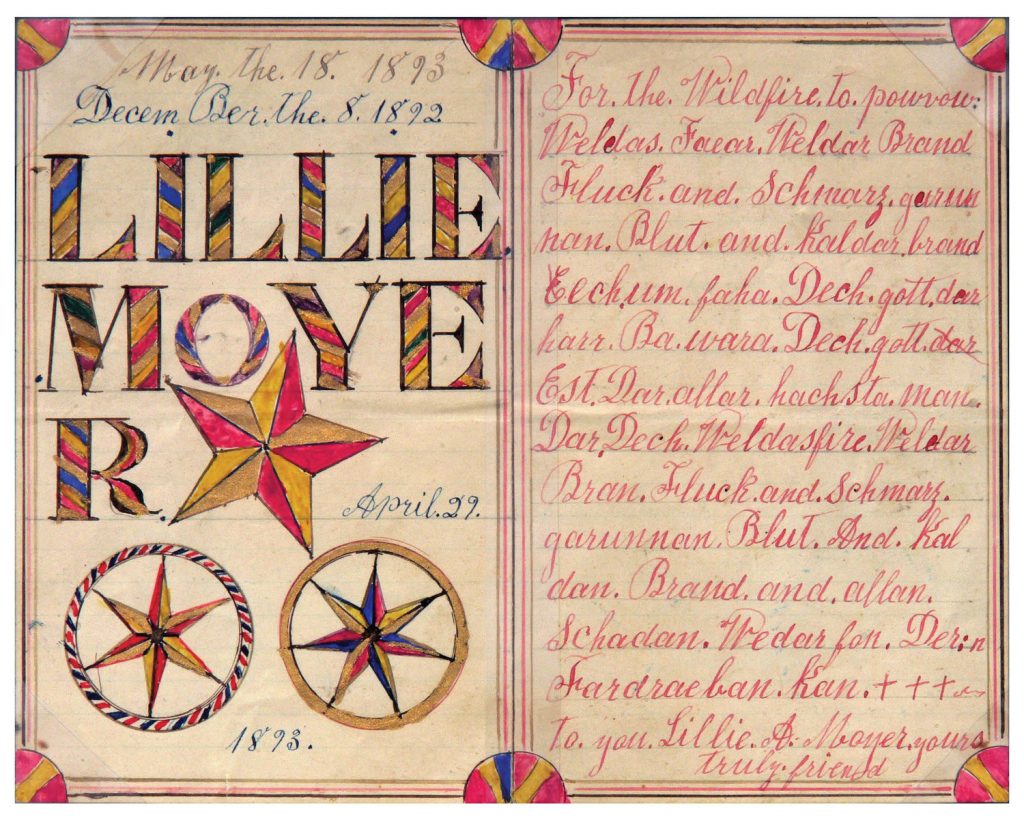 May. the. 18. 1893
Decem Ber. the. 8. 1892
LILLIE
MOYE
R.
April. 29.
1893.
For. the. Wildfire. to. powwow:
Weldas. Faear. Weldar Brand
Fluck. and. Schmarz. garun
nan. Blut. and. Kaldar. brand
Eech. um. faha. Dech. gott. dar
harr. Ba. wara. Dech. gott. dar
Est. Dar. allar. hachsta. man.
Dar. Dech. Weldasfire. Weldar
Bran. Fluck. and. Schmarz.
garunnan. Blut. And. Kal
dan. Brand. and. allan.
Schadan. Wedar fon. Der:n
Fardraeban. Kan. + + +
to. you. Lillie. A. Moyer. yours
truly. friend